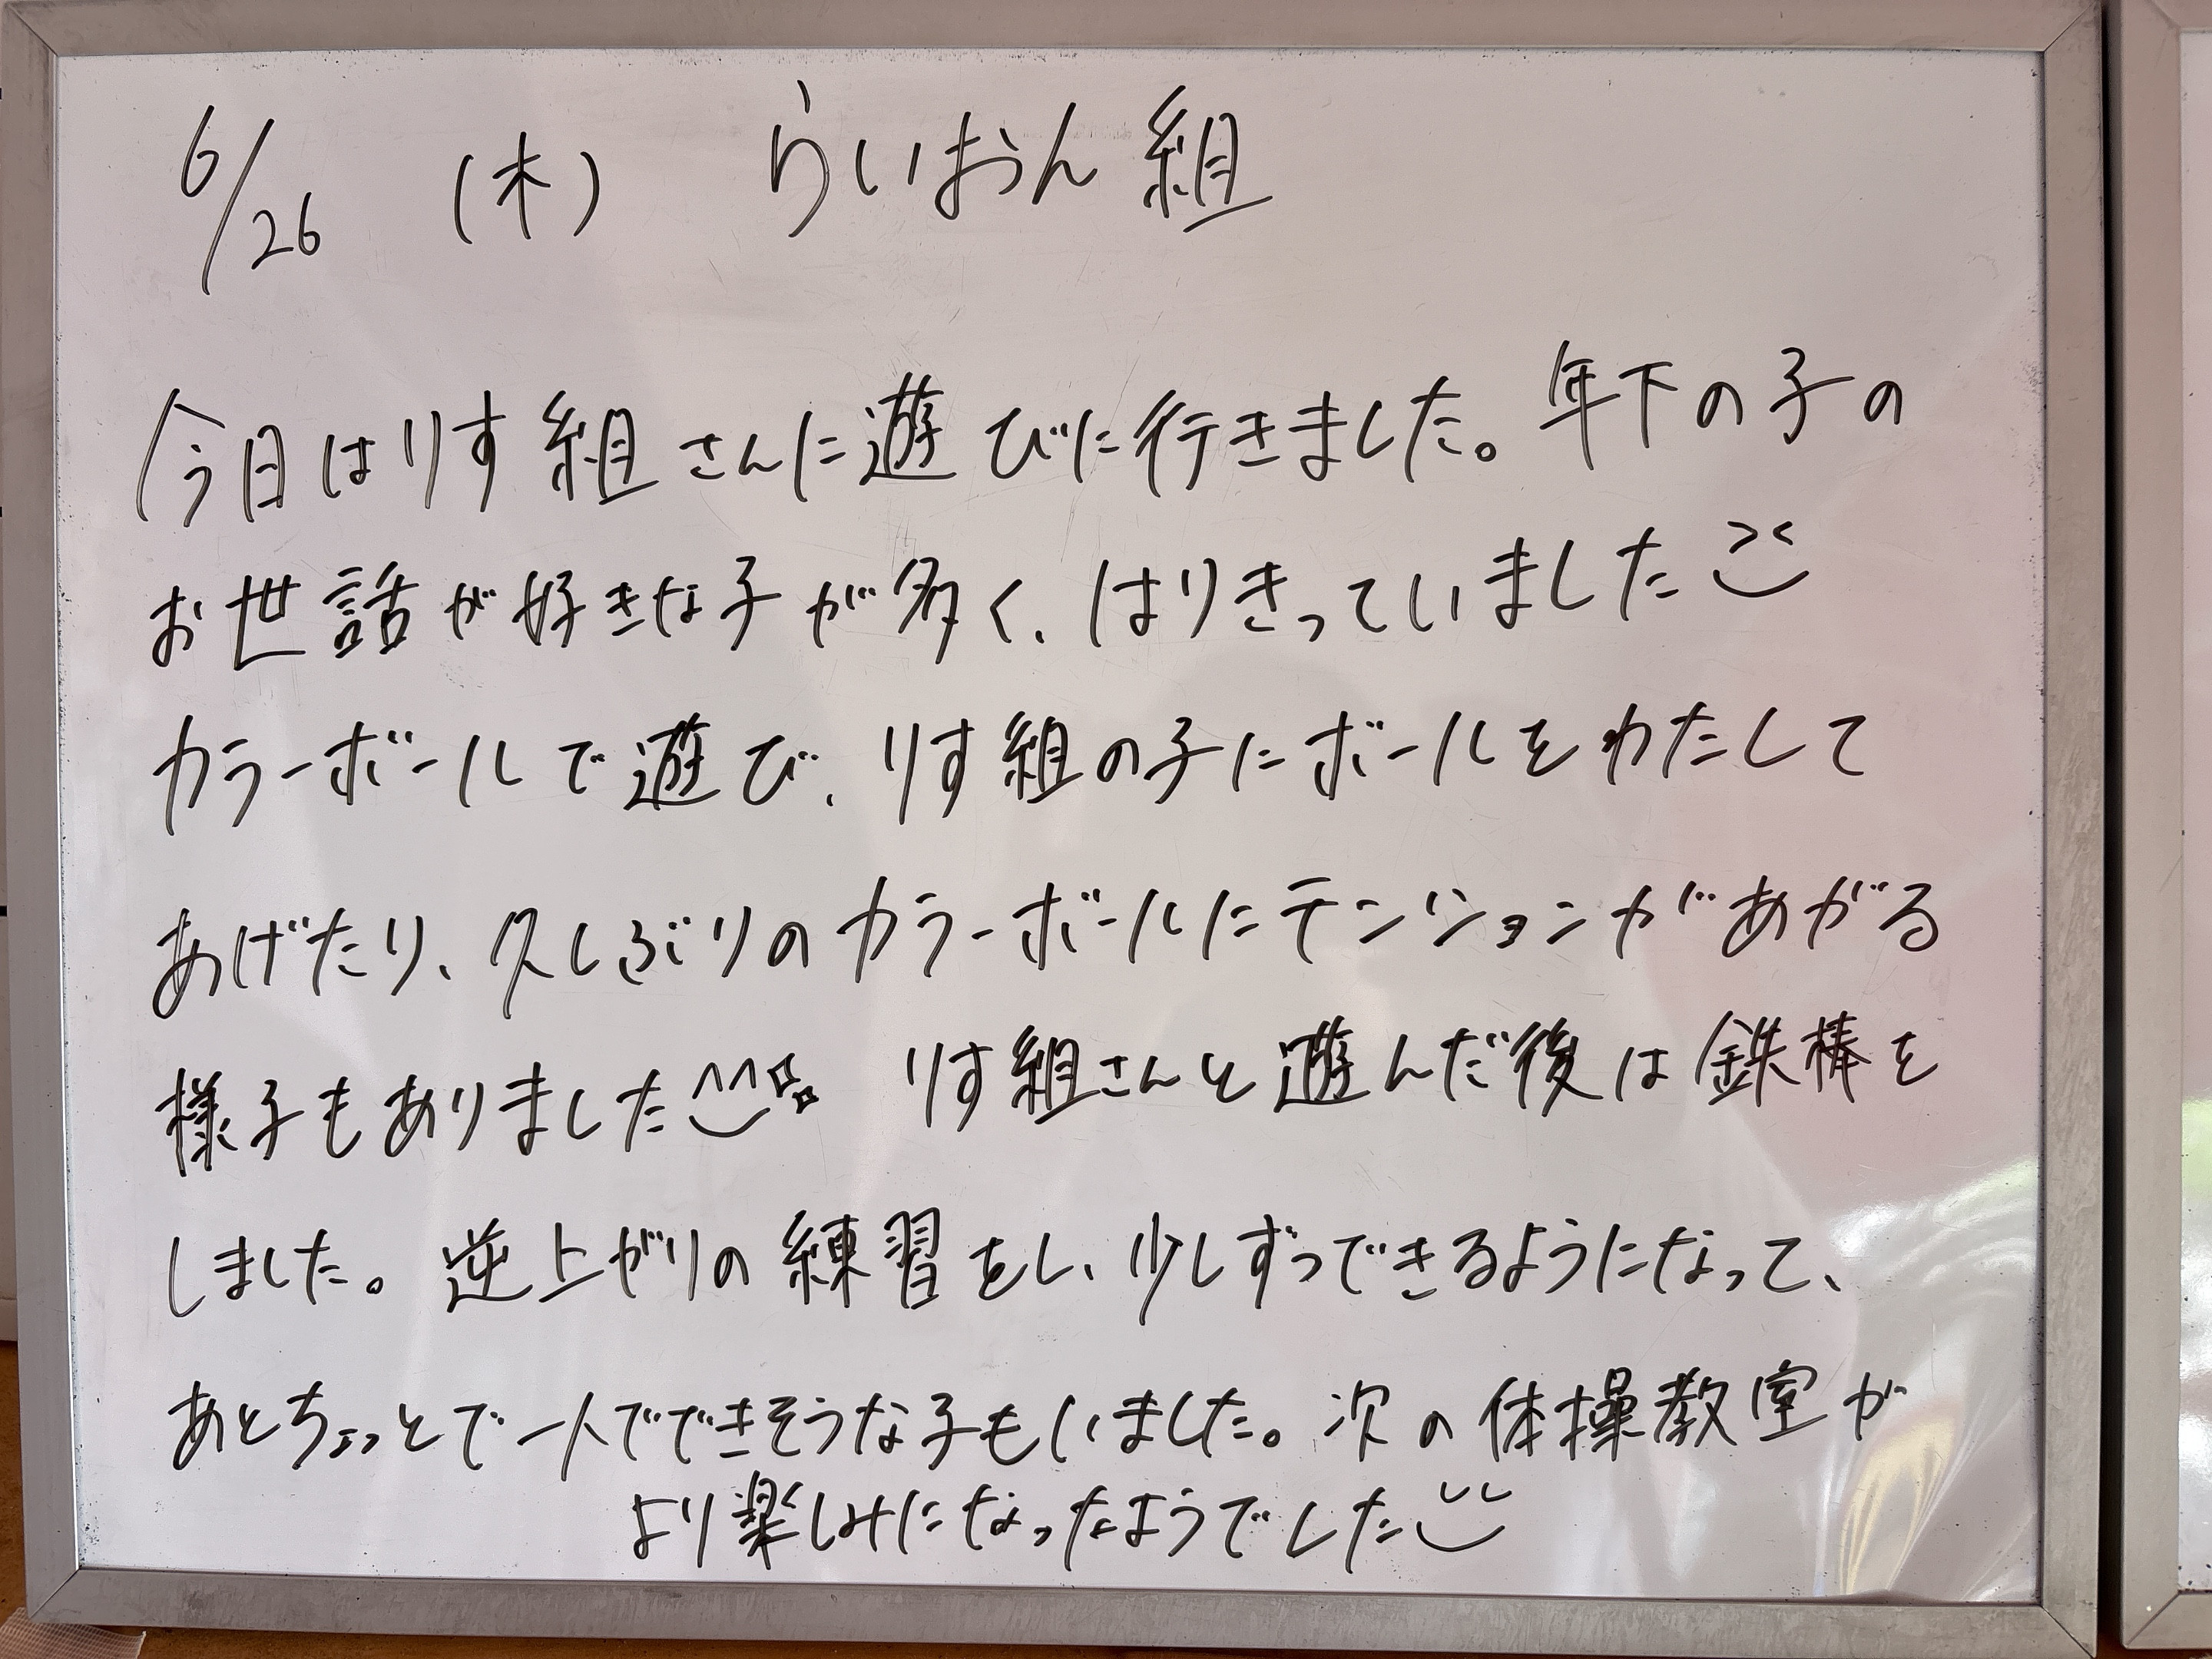 6/26 (木) らいおん組
今日はりす組さんに遊びに行きました。年下の子の
お世話が好きな子が多く、はりきっていました
カラーボールで遊び、りす組の子にボールをわたして
あげたり、久しぶりのカラーボールにテンションがあがる
様子もありました りす組さんと遊んだ後は鉄棒を
しました。逆上がりの練習をし、少しずつできるようになって、
あとちょっとで一人でできそうな子もいました。次の体操教室が
より楽しみになったようでした